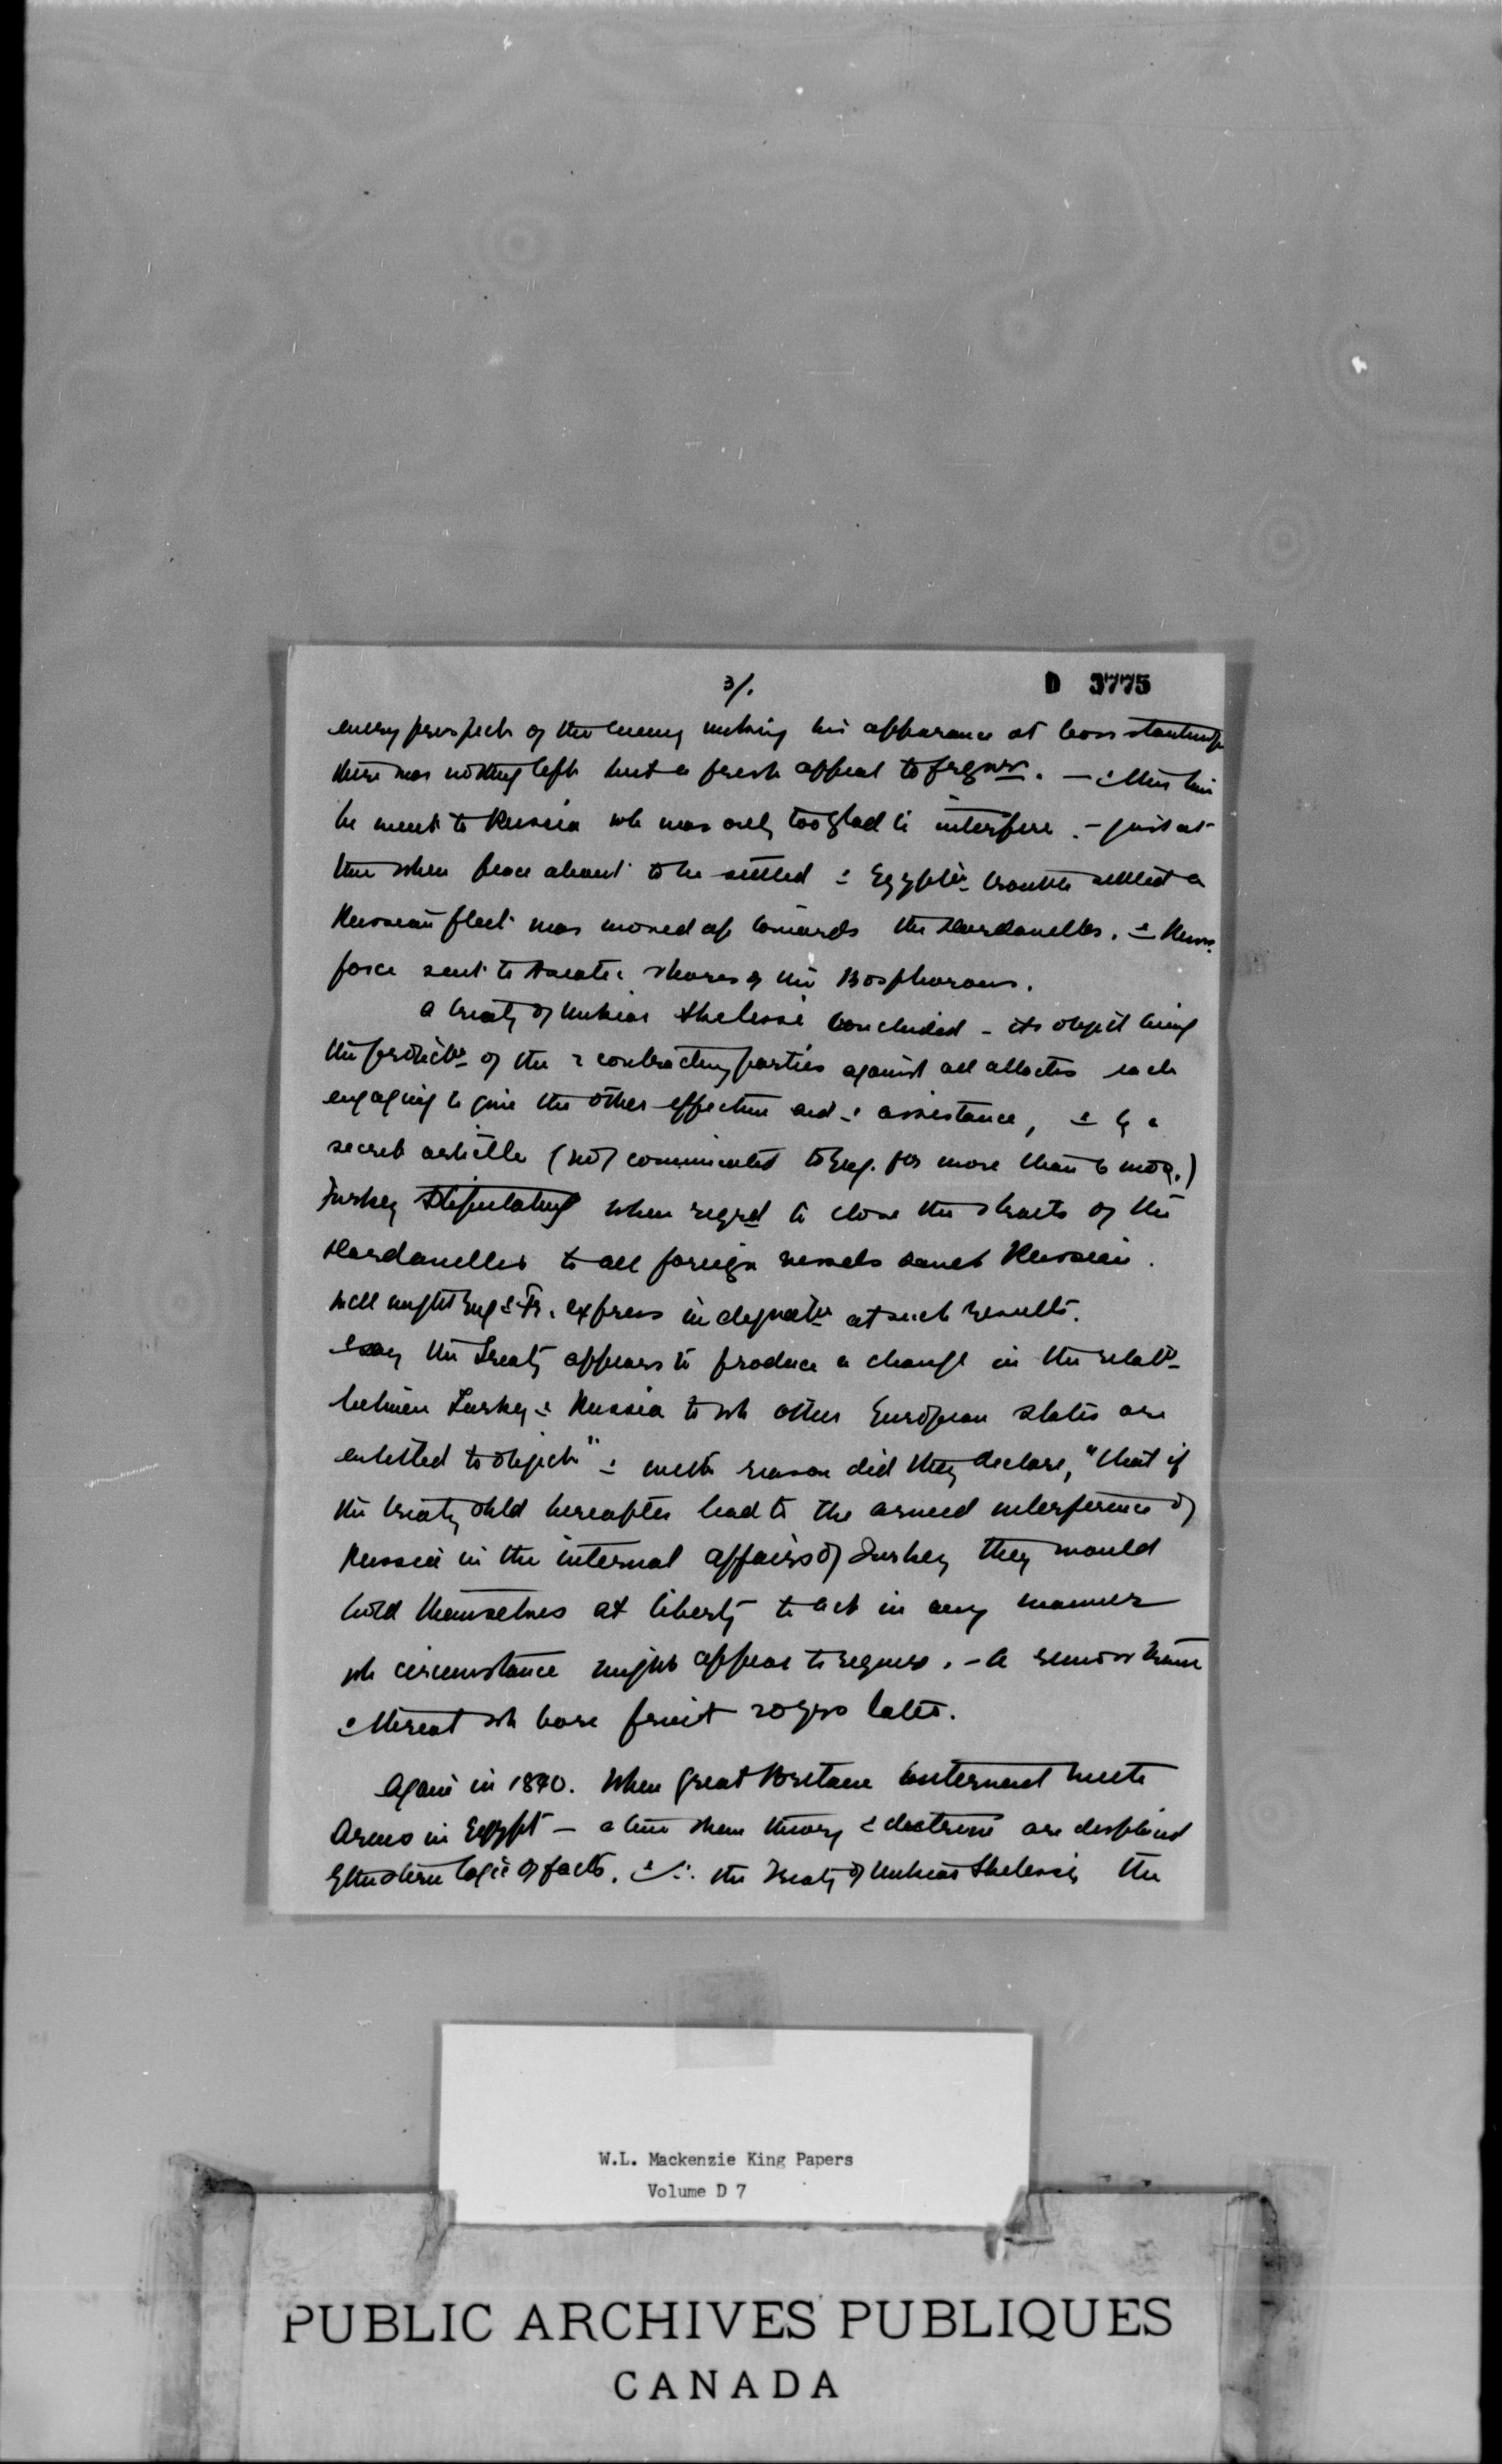 3/.
D 3775
every prospect of the enemy making his appearance at Constantinop
there was nothing left but a fresh appeal to . — & this time
he went to Russia wh was only too glad to interfere. - just at
time when peace about to be settled & Egyptn trouble settled a
Russian fleet was moved up towards the Dardanelles. & Russ.
force sent to Asiatic shores of the Bosphorous.
A treaty of Unkiar Skelessi concluded - its object being
the protectn of the 2 contracting parties against all attacks each
engaging to give the other effective aid & assistance, & by a
secret article (not communicated to Eng. for more than 6 mos.)
Turkey stipulating when reqrd to close the straits of the
Dardanelles to all foreign vessels save Russian.
Well might Eng & Fr. express indignatn at such results.
say the Treaty appears to produce a change in the relatn
between Turkey & Russia to wh other European states are
entitled to object" & with reason did they declare, "that if
the treaty shld hereafter lead to the armed interference of
Russia in the internal affairs of Turkey they would
hold themselves at liberty to act in any manner
wh circumstance might appear to require. - A remonstrance
& threat wh bore fruit 20 yrs later.
Again in 1840. When Great Britain intervened with
Arms in Egypt — a time when theory & doctrine are displaced
by the stern logic of facts. & ∴ the Treaty of Unkiar Skelessi, the
W.L. Mackenzie King Papers
Volume D 7
PUBLIC ARCHIVES PUBLIQUES
CANADA